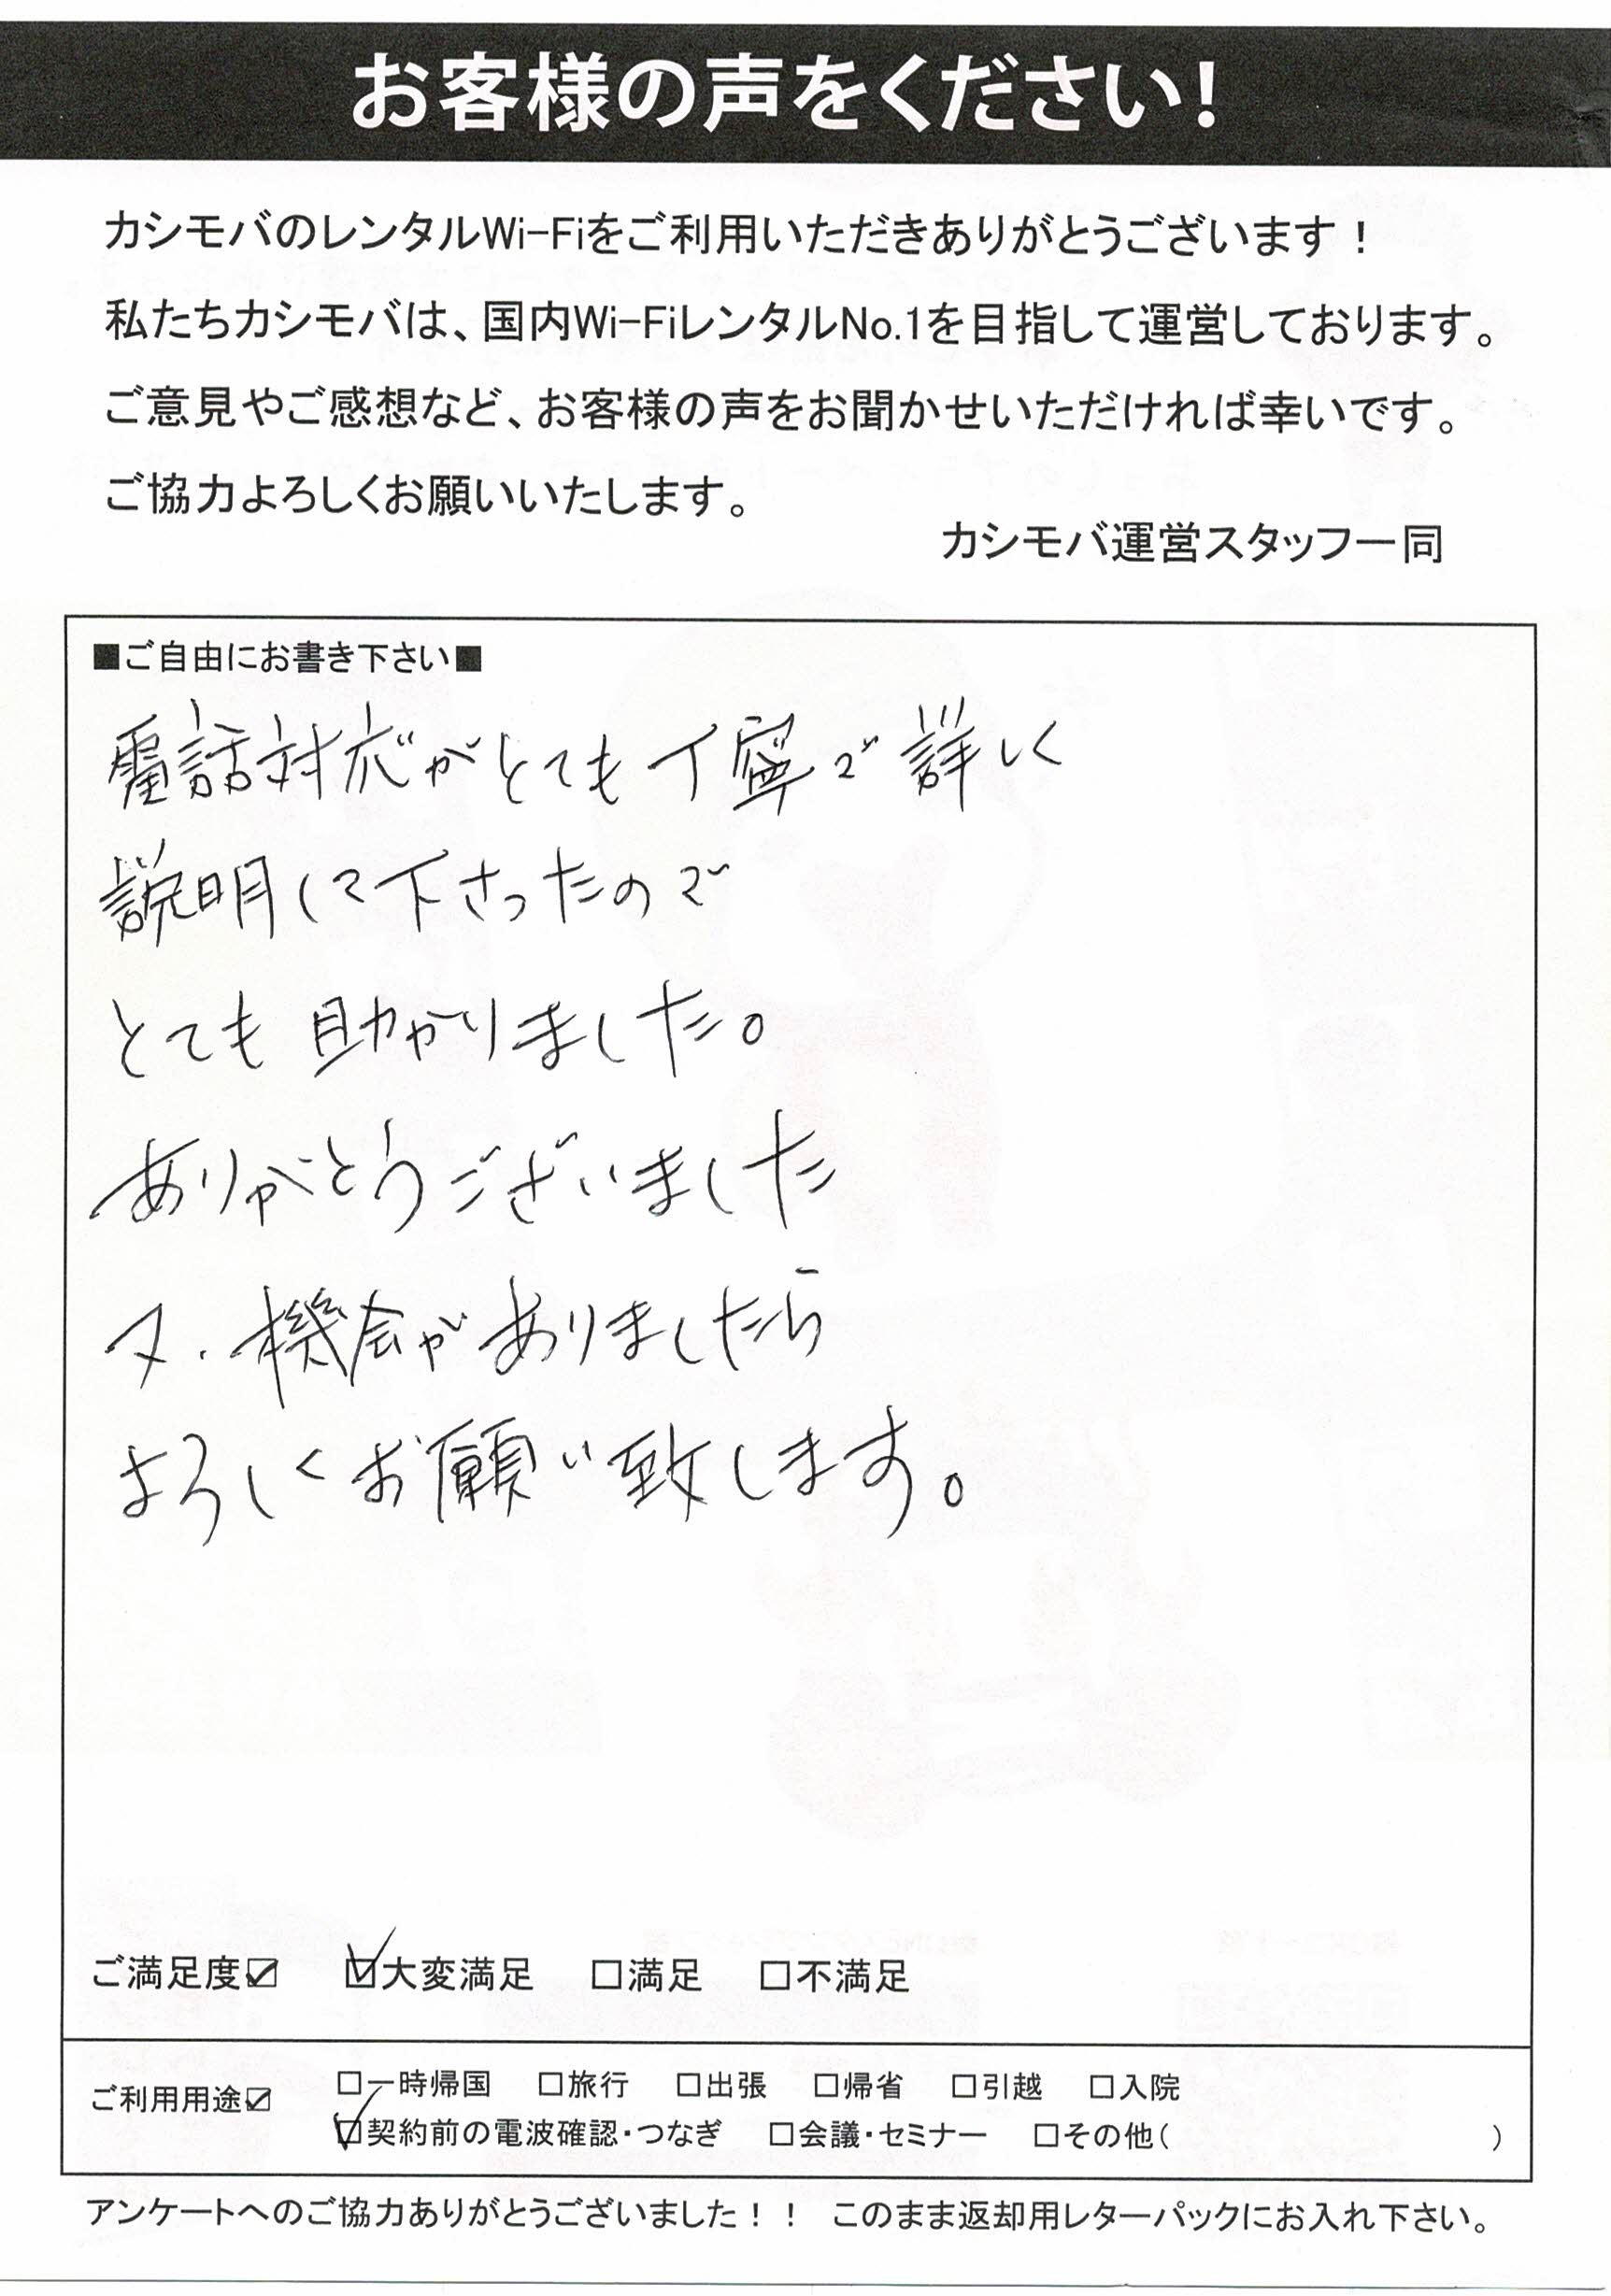 お客様の声をください！
カシモバのレンタルWi-Fiをご利用いただきありがとうございます！
私たちカシモバは、国内Wi-FiレンタルNo.1を目指して運営しております。
ご意見やご感想など、お客様の声をお聞かせいただければ幸いです。
ご協力よろしくお願いいたします。
カシモバ運営スタッフ一同
■ご自由にお書き下さい■
電話対応がとても丁寧で詳しく
説明して下さったので
とても助かりました。
ありがとうございました
又、機会がありましたら
よろしくお願い致します。
ご満足度☑ ☑大変満足 □満足 □不満足
ご利用用途☑ □一時帰国 □旅行 □出張 □帰省 □引越 □入院
☑契約前の電波確認・つなぎ □会議・セミナー □その他( )
アンケートへのご協力ありがとうございました！！ このまま返却用レターパックにお入れ下さい。